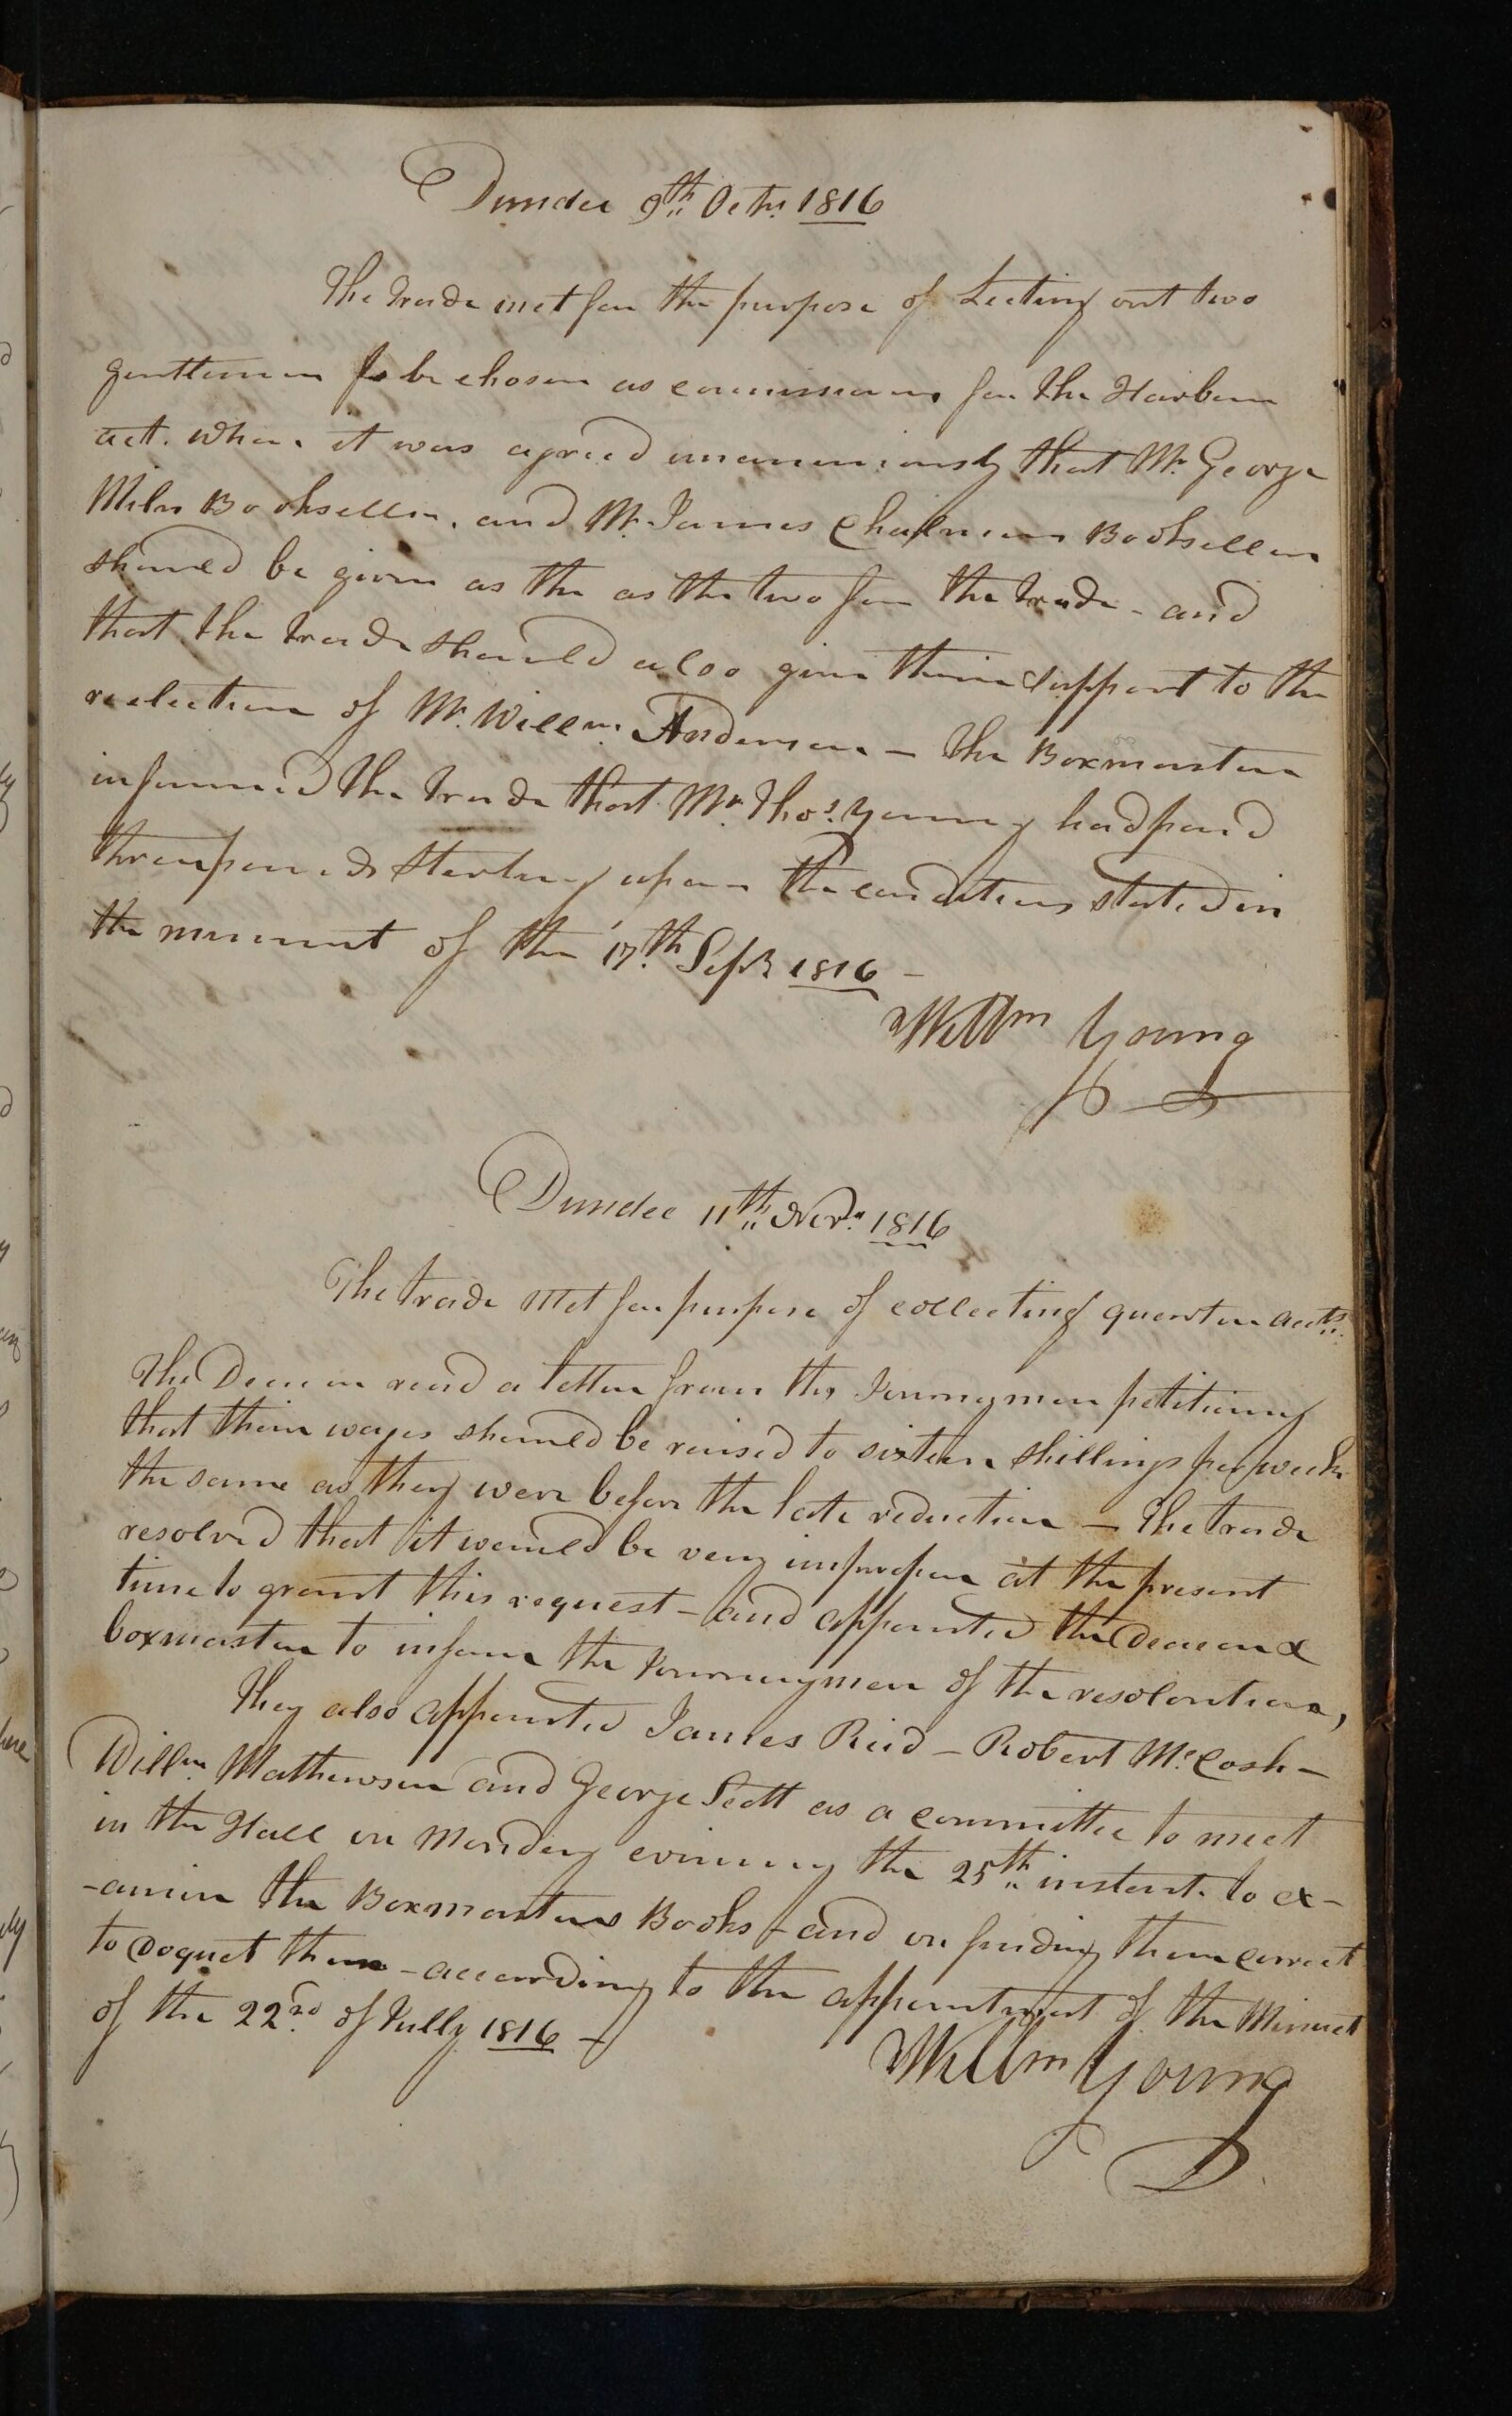 Dundee 9th Octr. 1816
The trade met for the purpose of Leeting out two
gentlemen to be chosen as commissioners for the Harbour
act. when it was agreed unanimously that Mr. George
Miln Bookseller, and Mr. James Chalmers Bookseller
should be given as the as the two for the trade - and
that the trade should also give their support to the
reelection of Mr. Willm. Anderson — the Boxmaster
informed the trade that Mr. Thos. Young had paid
three pounds Sterling upon the conditions stated in
the minuet of the 17th. Sepr. 1816 -
Willm Young
D
Dundee 11th. Novr. 1816
The trade Met for purpose of collecting quarter accts.
The Deacon read a letter from the Journeymen petitioning
that their wages should be raised to sixteen shillings per week
the same as they were before the late reduction — The trade
resolved that it would be very improper at the present
time to grant this request - and appointed the Deacon &
boxmaster to inform the Journeymen of the resolution,
They also appointed James Reid - Robert McCosh -
Willm. Mathewson and George Scott as a committee to meet
in the Hall on Monday evining the 25th. instant. to ex-
-amine the Boxmasters Books - and on finding them correct
to doquet them - according to the appointment of the Minuet
of the 22nd. of Jully 1816 -
Willm Young
D